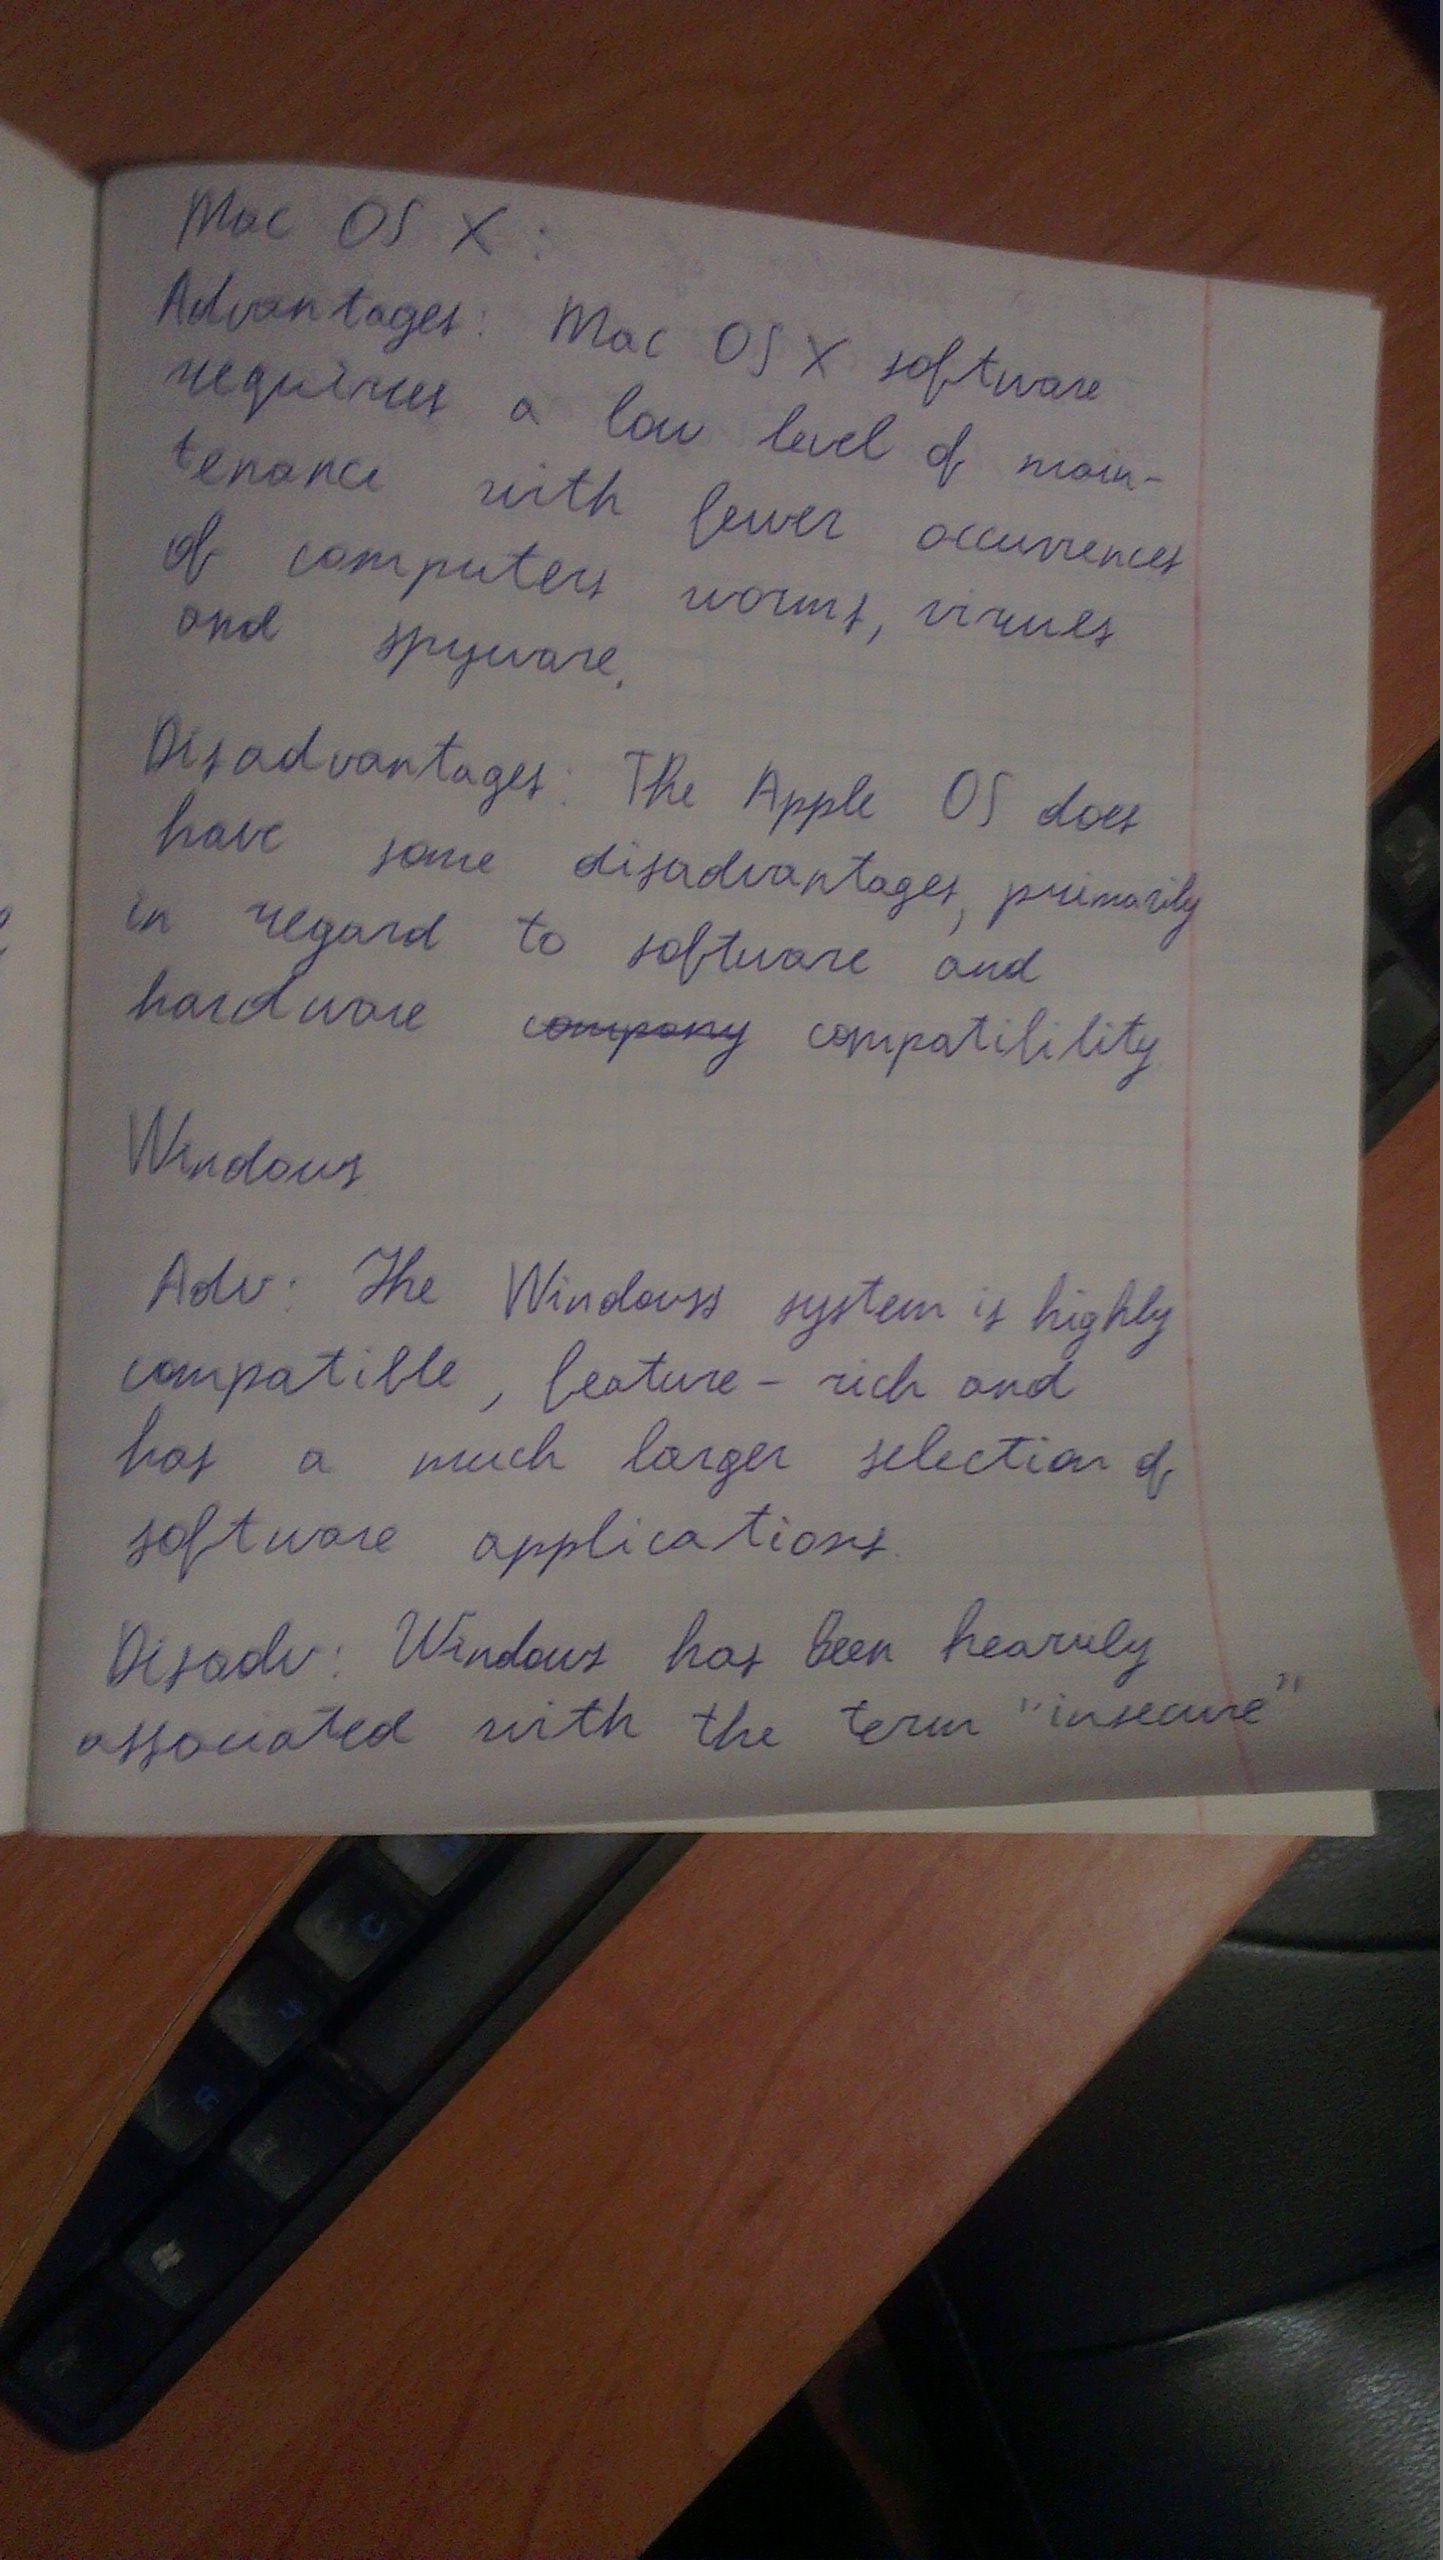 Mac OS X :
Advantages: Mac OS X software
requires a low level of main-
tenance with fewer occurrences
of computers worms, viruses
and spyware.
Disadvantages: The Apple OS does
have some disadvantages, primarily
in regard to software and
hardware company compatibility
Windows
Adv: The Windowss system is highly
compatible, feature-rich and
has a much larger selection of
software applications.
Disadv: Windows has been heavily
associated with the term "insecure"